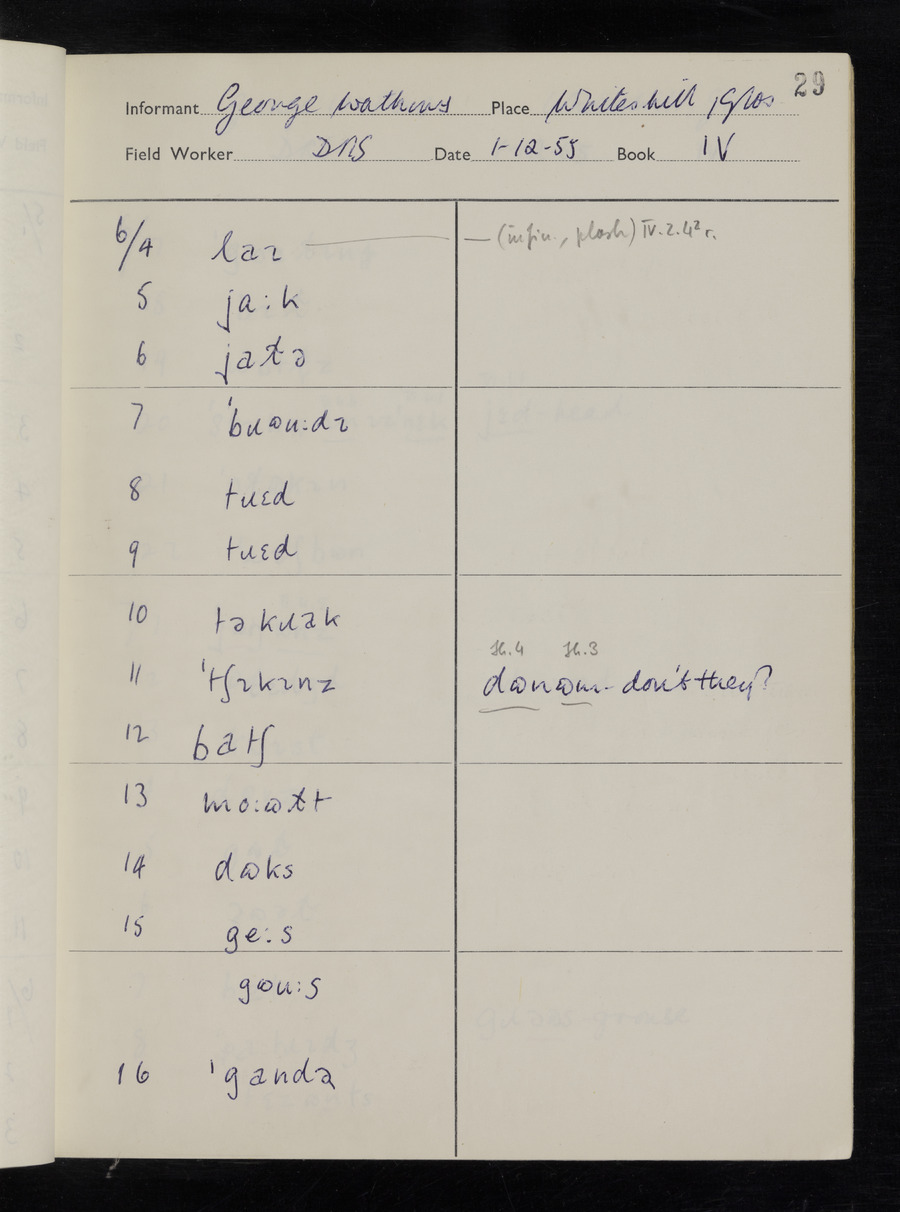 29
Informant George Wathews Place Whiteshill, Glos
Field Worker DRS Date 1-12-55 Book IV
6/4 laɪ — (infin., plash) IV.2.4² r.
5 ja:k
6 jaɫə
7 ˈbɹɷu:dɪ
8 tɹɛd
9 tɹɛd
10 tə kɹək
Sh.4 Sh.3
11 ˈtʃɪkɪnz dɷnɷm - don't they?
12 batʃ
13 mo:ɷɫt
14 dɷks
15 ge:s
gɷu:s
16 ˈgandə